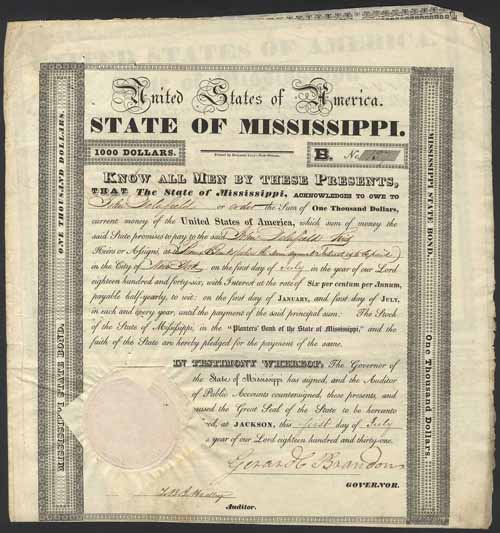 United States of America.
STATE OF MISSISSIPPI.
1000 DOLLARS.
B. No.
KNOW ALL MEN BY THESE PRESENTS,
THAT The State of Mississippi, ACKNOWLEDGES TO OWE TO
or order the Sum of One Thousand Dollars,
current money of the United States of America, which sum of money the
said State promises to pay to the said
Heirs or Assigns, at
in the City of New York on the first day of July, in the year of our Lord
eighteen hundred and forty-six, with Interest at the rate of Six per centum per Annum,
payable half-yearly, to wit: on the first day of JANUARY, and first day of JULY,
in each and every year, until the payment of the said principal sum: The Stock
of the State of Mississippi, in the "Planters' Bank of the State of Mississippi," and the
faith of the State are hereby pledged for the payment of the same.
IN TESTIMONY WHEREOF, The Governor of
the State of Mississippi has signed, and the Auditor
of Public Accounts countersigned, these presents, and
caused the Great Seal of the State to be hereunto
at JACKSON, this first day of July
year of our Lord eighteen hundred and thirty-one.
Gerard C Brandon
GOVERNOR.
Auditor.
ONE THOUSAND DOLLARS.
MISSISSIPPI STATE BOND.
MISSISSIPPI STATE BOND.
One Thousand Dollars.